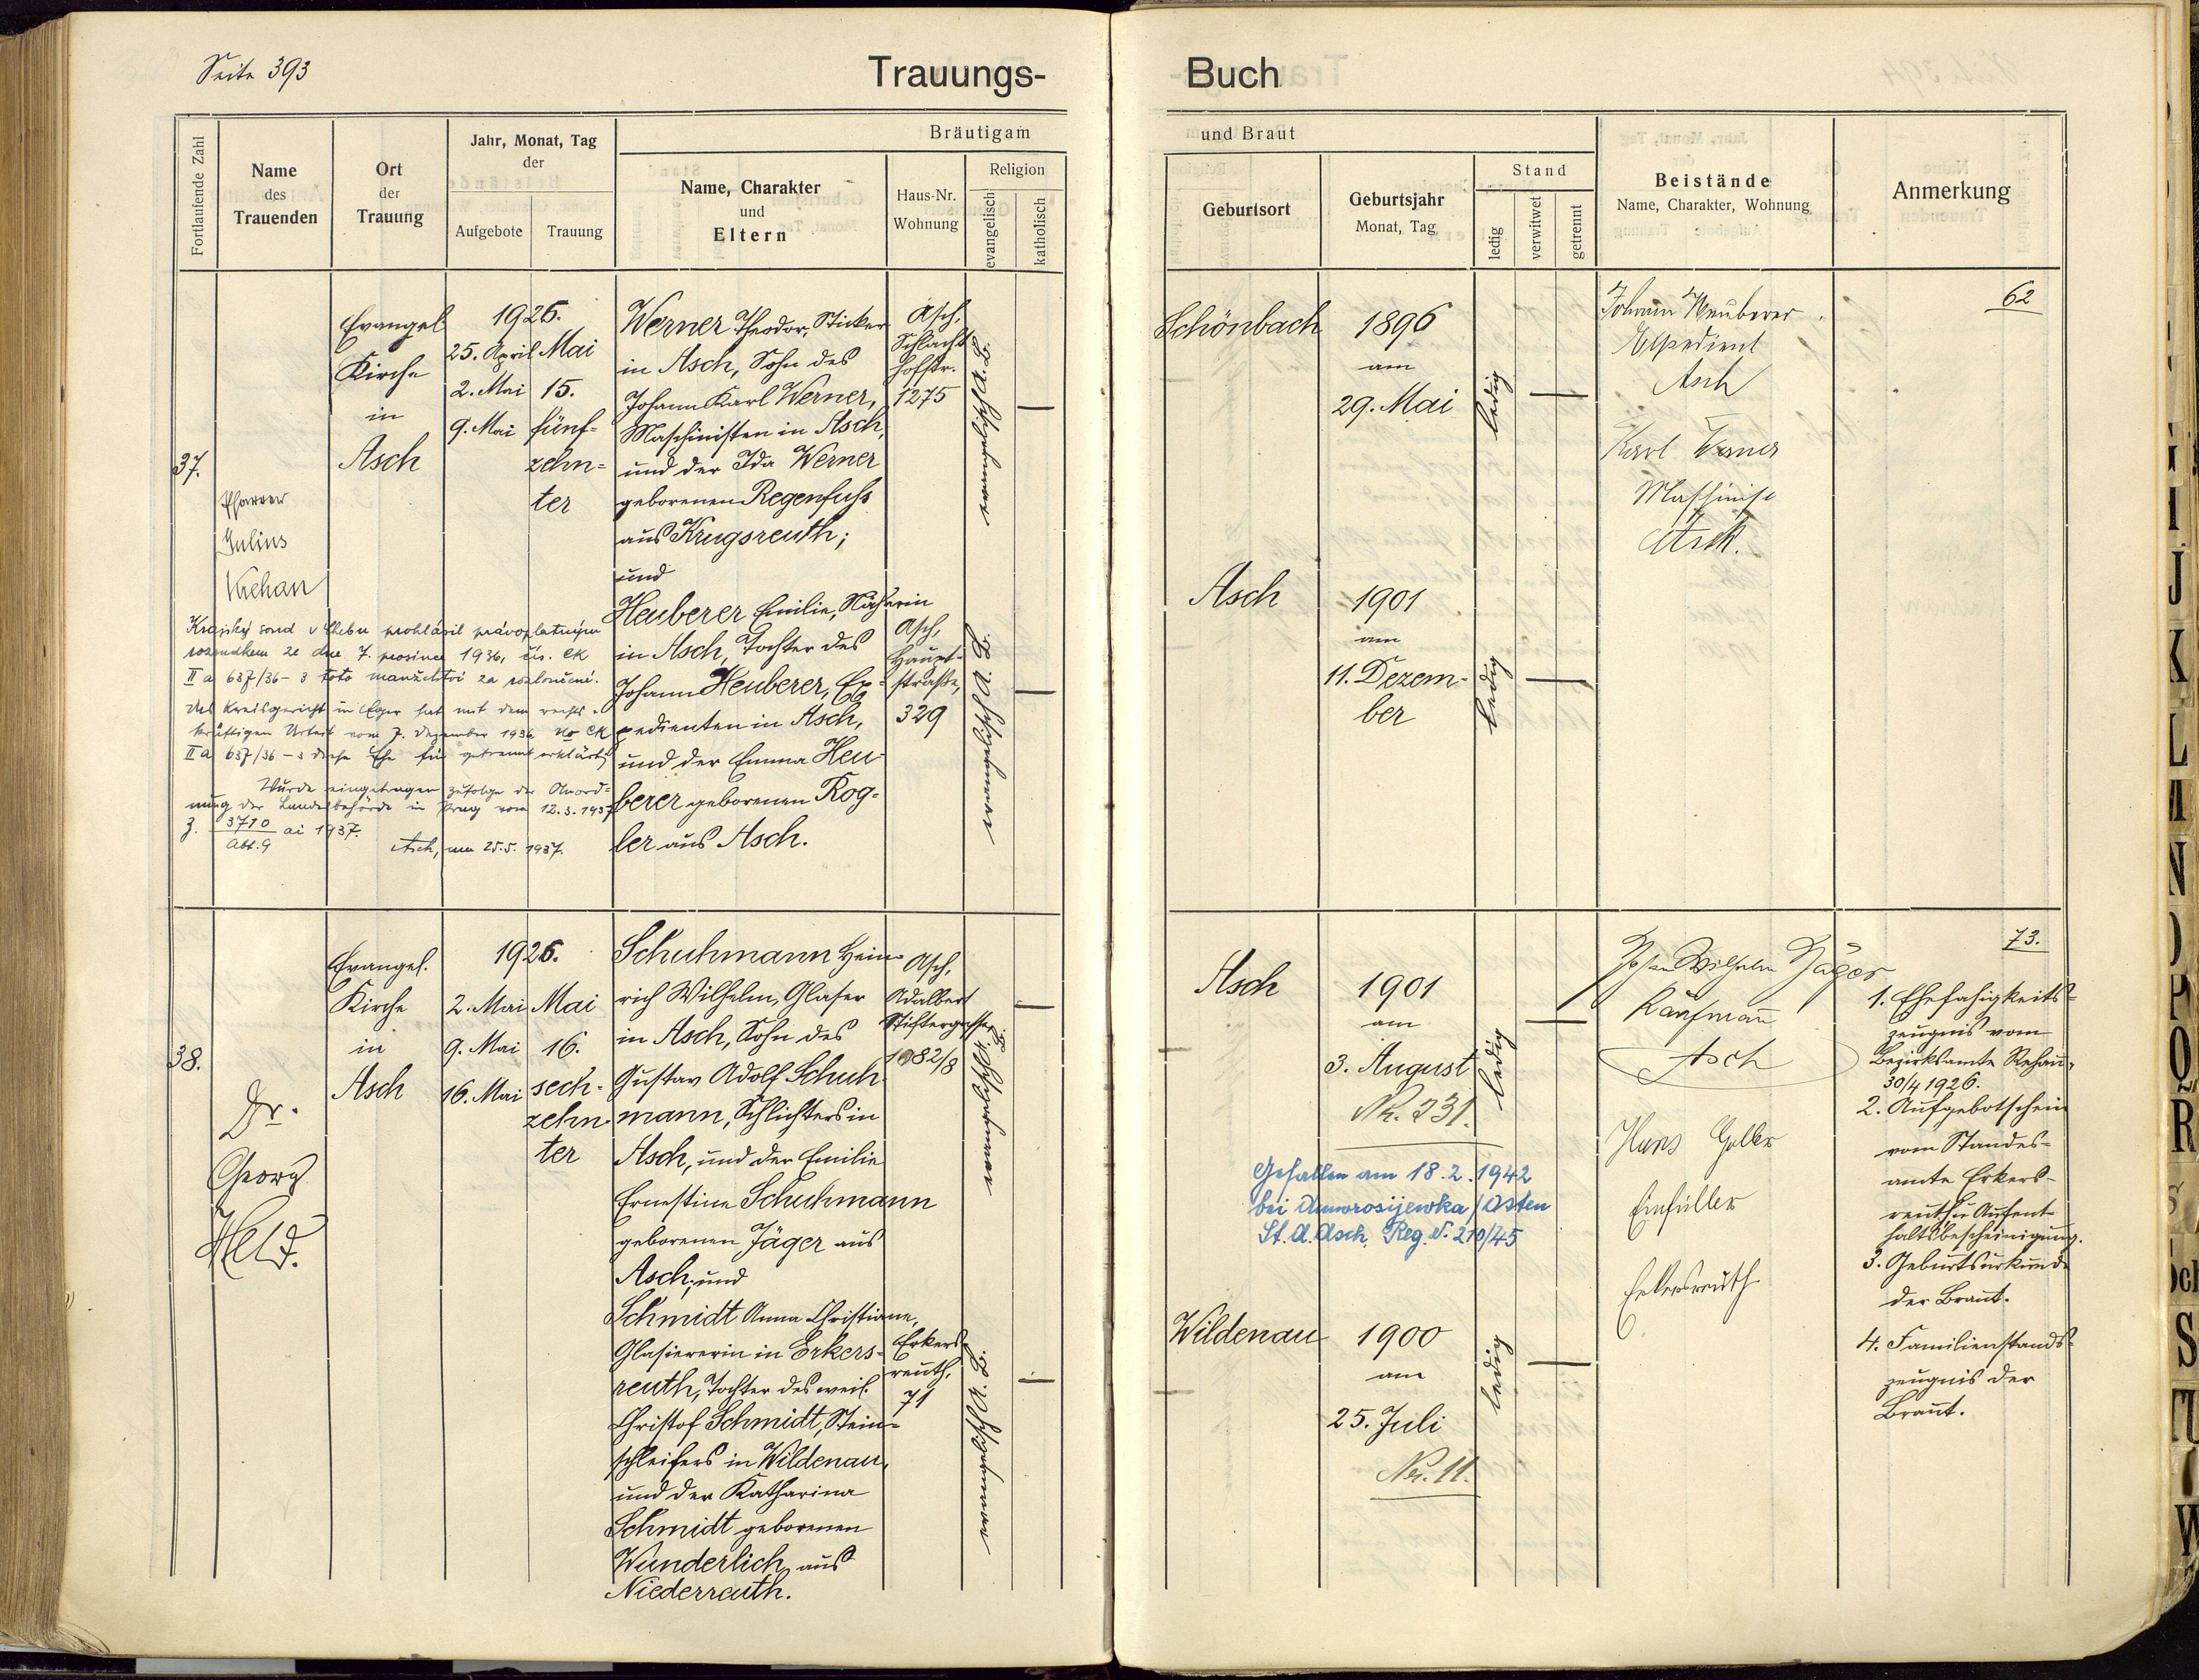 Seite 393
Trauungs-
Buch
Fortlaufende Zahl
Name
des
Trauenden
Ort
der
Trauung
Jahr, Monat, Tag
der
Aufgebote
Trauung
Bräutigam
Name, Charakter
und
Eltern
Haus-Nr.
Wohnung
Religion
evangelisch
katholisch
und Braut
Geburtsort
Geburtsjahr
Monat, Tag
Stand
ledig
verwitwet
getrennt
Beistände
Name, Charakter, Wohnung
Anmerkung
37.
Pfarrer
Julius
Krehan
Evangel
Kirche
in
Asch
1926.
25. April
2. Mai
9. Mai
Mai
15.
fünf-
zehn-
ter
Werner Theodor, Sticker
in Asch, Sohn des
Johann Karl Werner,
Maschinisten in Asch,
und der Ida Werner
geborenen Regenfuss
aus Krugsreuth;
und
Heuberer Emilie, Näherin
in Asch, Tochter des
Johann Heuberer, Ex-
pedienten in Asch,
und der Emma Heu-
berer geborenen Rog-
ler aus Asch.
Asch,
Schlacht
hofstr.
1275
Asch,
Haupt-
straße,
329
evangelisch A. B.
evangelisch A. B.
Krajský soud v Chebu prohlásil právoplatným
rozsudkem ze dne 7. prosince 1936, čís. CK
II a 637/36-3 toto manželství za rozloučené.
Das Kreisgericht in Eger hat mit dem rechts-
kräftigen Urteil vom 7. Dezember 1936 No CK
II a 637/36-3 diese Ehe für getrennt erklärt.
Wurde eingetragen zufolge der Anord-
nung der Landesbehörde in Prag vom 12.3.1937
Z. 3710 ai 1937.
Abt. 9
Asch, am 25.5.1937.
Schönbach
1896
am
29. Mai
ledig
Asch
1901
am
11. Dezem-
ber
ledig
Johann Heuberer
Expedient
Asch
Karl Werner
Maschinist
Asch.
62
38.
Dr.
Georg
Held.
Evangel.
Kirche
in
Asch
1926.
2. Mai
9. Mai
16. Mai
Mai
16.
sech-
zehn
ter
Schuhmann Hein-
rich Wilhelm, Glaser
in Asch, Sohn des
Gustav Adolf Schuh-
mann, Schlichters in
Asch, und der Emilie
Ernestine Schuhmann
geborenen Jäger aus
Asch; und
Schmidt Anna Christiane,
Glasiererin in Erkers-
reuth, Tochter des weil.
Christof Schmidt, Stein-
schleifers in Wildenau,
und der Katharina
Schmidt geborenen
Wunderlich aus
Niederreuth.
Asch,
Adalbert
Stiftergasse
1982/8
Erkers-
reuth,
71
evangelisch A. B.
evangelisch A. B.
Asch
1901
am
3. August
Nr. 231.
ledig
Gefallen am 18.2.1942
bei Amwrosijewka/Osten
St. A. Asch, Reg. N. 210/45
Wildenau
1900
am
25. Juli
Nr. 11.
ledig
Johann Wilhelm Jäger
Kaufmann
Asch
Hans
Einfüller
Erkersreuth
73.
1. Ehefähigkeits-
zeugnis vom
Bezirksamte Rehau,
30/4 1926.
2. Aufgebotschein
vom Standes-
amte Erkers-
reuth u. Aufent-
haltsbescheinigung.
3. Geburtsurkunde
der Braut.
4. Familienstands-
zeugnis der
Braut.